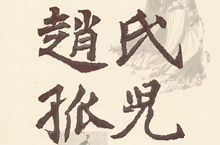 趙氏
孤兒